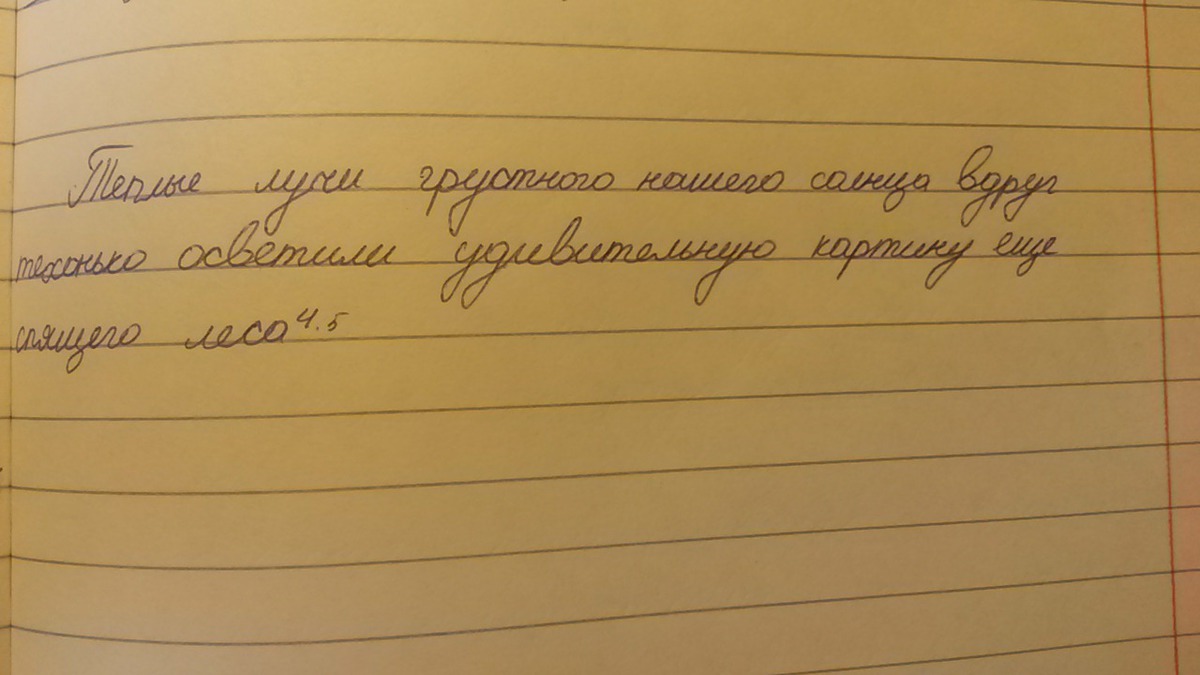 Теплые лучи грустного нашего солнца вдруг
техонько осветили удивительную картину еще
спящего леса 4.5